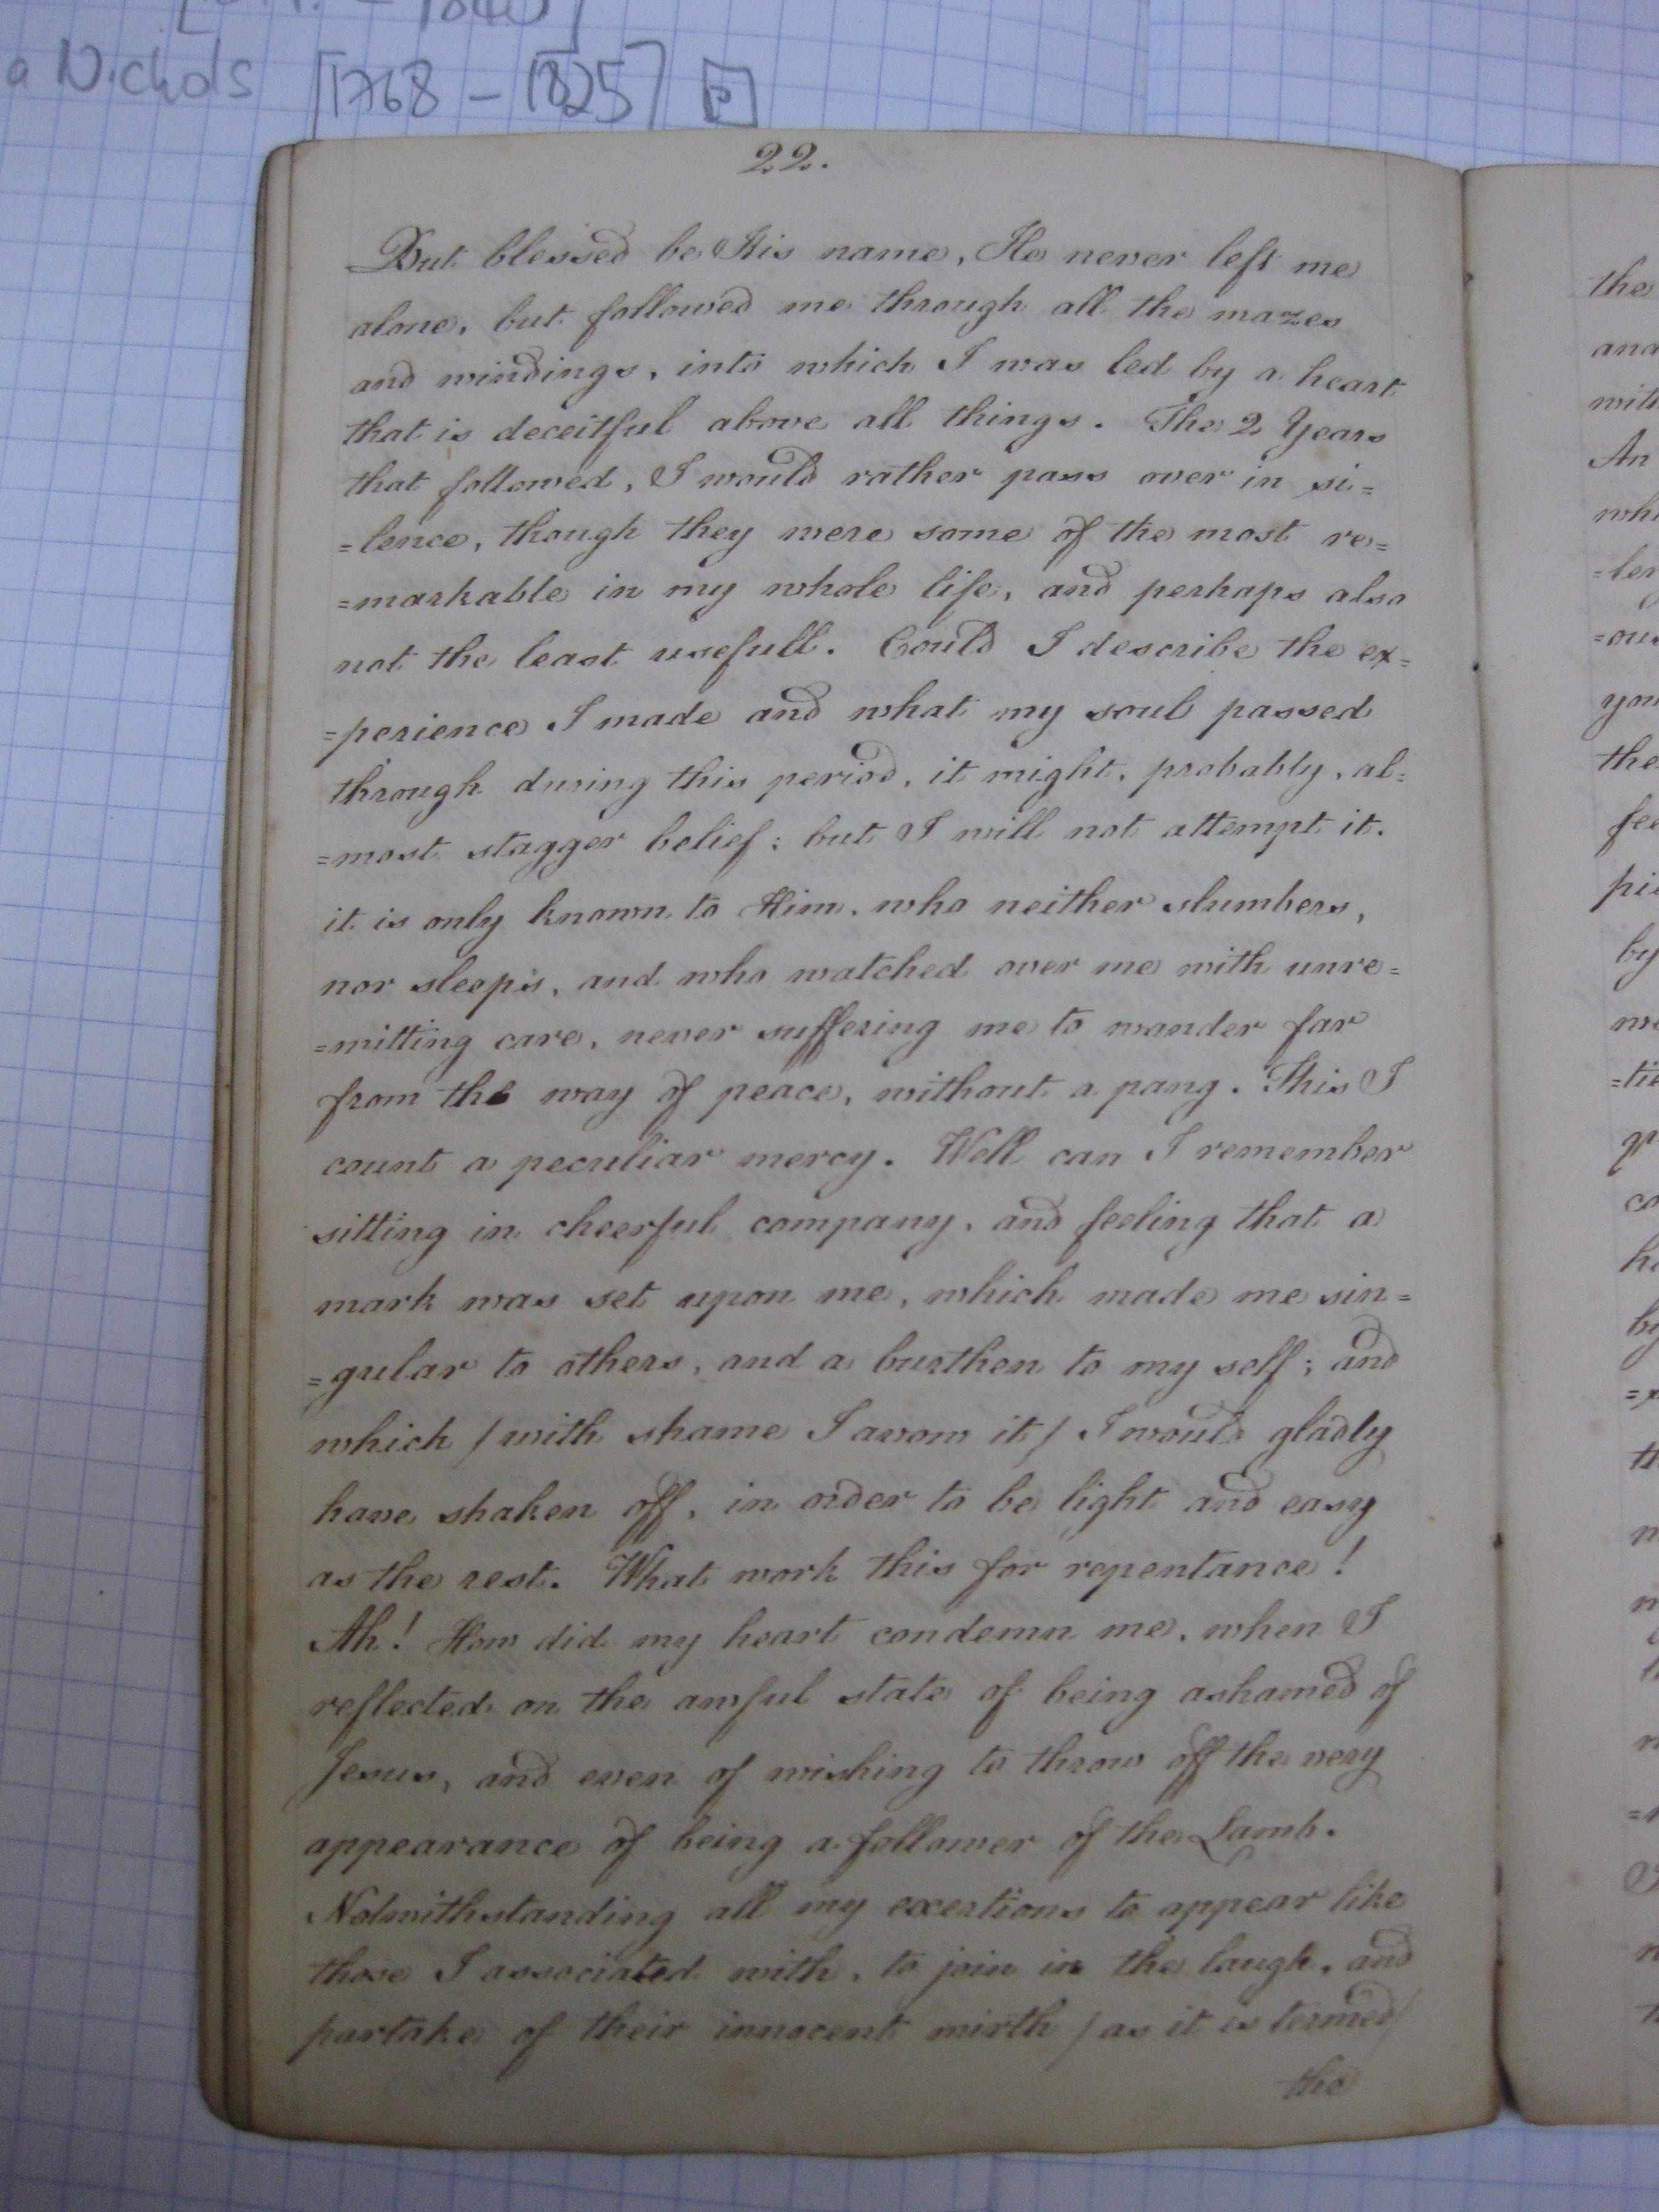 a Nichols [1768 - 1825] P
22.
But blessed be His name, He never left me
alone, but followed me through all the mazes
and windings, into which I was led by a heart
that is deceitful above all things. The 2 Years
that followed, I would rather pass over in si=
=lence, though they were some of the most re=
=markable in my whole life, and perhaps also
not the least usefull. Could I describe the ex=
=perience I made and what my soul passed
through during this period, it might, probably, al=
=most stagger belief: but I will not attempt it.
it is only known to Him, who neither slumbers,
nor sleeps, and who watched over me with unre=
=mitting care, never suffering me to wander far
from the way of peace, without a pang. This I
count a peculiar mercy. Well can I remember
sitting in cheerful company, and feeling that a
mark was set upon me, which made me sin=
=gular to others, and a burthen to my self; and
which /with shame I avow it/ I would gladly
have shaken off, in order to be light and easy
as the rest. What work this for repentance!
Ah! How did my heart condemn me, when I
reflected on the awful state of being ashamed of
Jesus, and even of wishing to throw off the very
appearance of being a follower of the Lamb.
Notwithstanding all my exertions to appear like
those I associated with, to join in the laugh, and
partake of their innocent mirth /as it is termed/
the
the
and
An
you
the
by